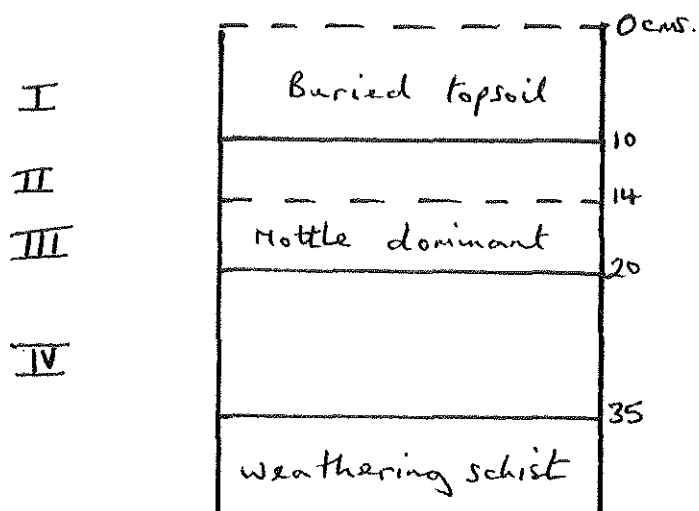 0 cms.
I
Buried topsoil
10
II
14
III
Mottle dominant
20
IV
35
weathering schist